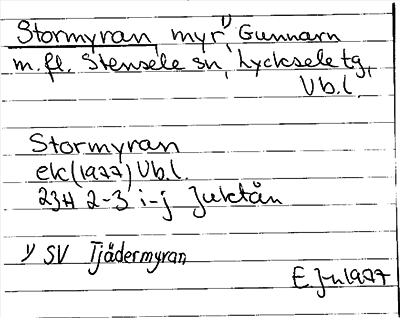 Stormyran, myr¹⁾, Gunnarn
m.fl. Stensele sn, Lycksele tg,
Vb.l.
Stormyran
ek(1977) Vb.l.
23H 2-3 i-j Juktån
¹⁾ SV Tjädermyran
E Jn 1977